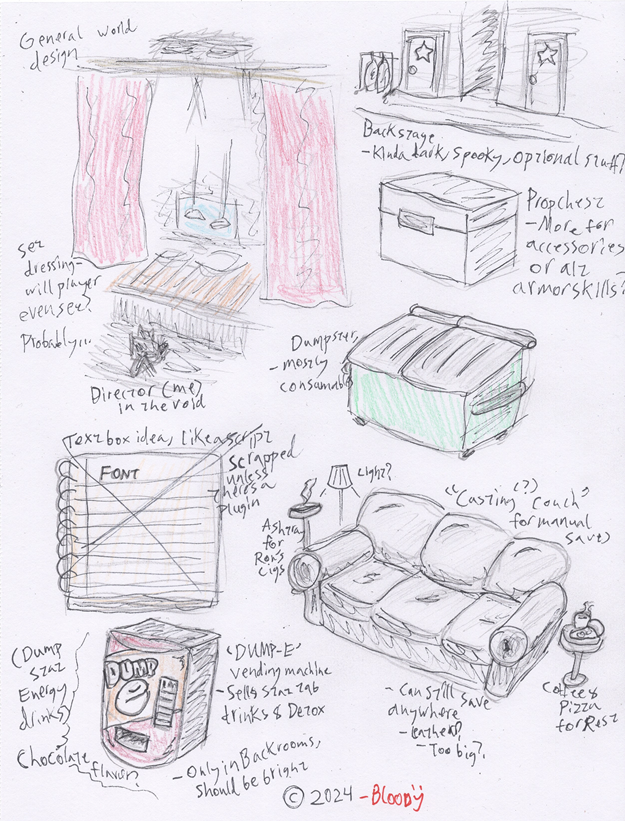 General world
design
Backstage
-Kinda dark, spooky, optional stuff?
Propchest
-More for
accessories
or alt
armorskills?
set
dressing-
will player
even see?
Probably...
Director (me)
in the void
Dumpster,
-mostly
consumable
Textbox idea, like a script
scrapped
unless
theres a
plugin
FONT
Light?
"Casting (?) Couch"
for manual
saves
Ashtray
for
Ron's
Cigs
(Dump
Stat
Energy
drinks)
Chocolate
flavor?
DUMP
E
'DUMP-E'
vending machine
-Sells stat
drinks & Detox
-Only in Backrooms,
should be bright
-Can still save
anywhere
-Leather?
-Too big?
Coffee &
Pizza
for Rest
© 2024 -Bloody